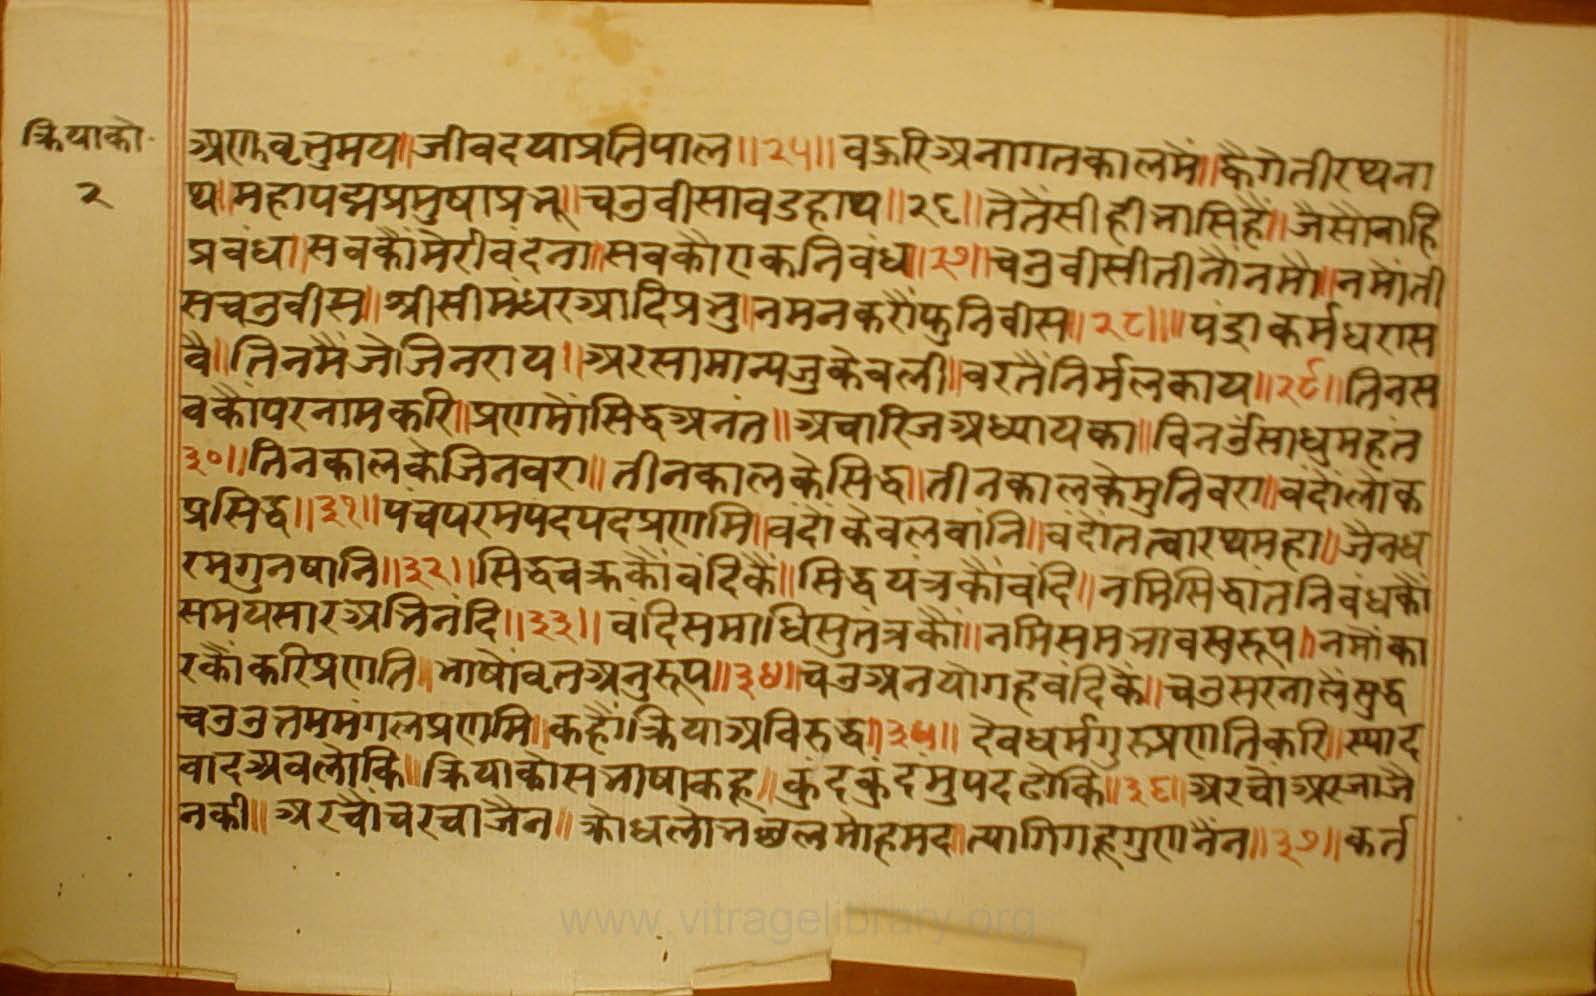 क्रियाको॰
२
अणुवृत्तुमय॥जीवदयाप्रतिपाल॥२५॥वऊरिअनागतकालमैं॥कैगेतीरथना
थ॥महापद्मप्रमुषाप्रभू॥चउवीसावडहाथ॥२६॥तेतैसीहीभासिहैं॥जैसौनाहि
प्रवंधा॥सवकौंमेरीवंदना॥सवकौएकनिवंध॥२७॥चउवीसीतीनौंनमौं॥नमौंती
सचउवीस॥श्रीसीमंधरआदिप्रभु॥नमनकरौंफुनिवीस॥२८॥पंद्राकर्मधरास
वै॥तिनमैंजेजिनराय॥अरसामान्यजुकेवली॥वरतैंनिर्मलकाय॥२९॥तिनस
वकौंपरनामकरि॥प्रणमौंसिद्धअनंत॥अचारिजअध्यायका॥विनउंसाधुमहंत
३०॥तिनकालकेजिनवरा॥तीनकालकेसिद्ध॥तीनकालकेमुनिवरा॥वंदौंलोक
प्रसिद्ध॥३१॥पंचपरमपदपदप्रणमि॥वंदौंकेवलवांनि॥वंदौंतत्वारथमहा॥जैनध
रमगुनषानि॥३२॥सिद्धचक्रकौंवंदिकैं॥सिद्धयंत्रकौंवंदि॥नमिसिद्धांतनिवंधकौं
समयसारअभिनंदि॥३३॥वंदिसमाधिसुतंत्रकौं॥नमिसमभावसरूप॥नमोंका
रकौंकरिप्रणति॥भाषौंवृतअनुरूप॥३४॥चउअनयोगहवंदिकैं॥चउसरनालेसुद्ध
चउउत्तममंगलप्रणमि॥कहौंक्रियाअविरुद्ध॥३५॥देवधर्मगुरुप्रणतिकरि॥स्याद
वादअवलोकि॥क्रियाकोसभाषाकहू॥कुंदकुंदमुपदढोकि॥३६॥अरचौंअरजाजै
नकी॥अरचौंचरचाजैन॥क्रोधलोभछलमोहमद॥त्यागिगहूगुणनैन॥३७॥कर्त
www.vitragelibrary.org